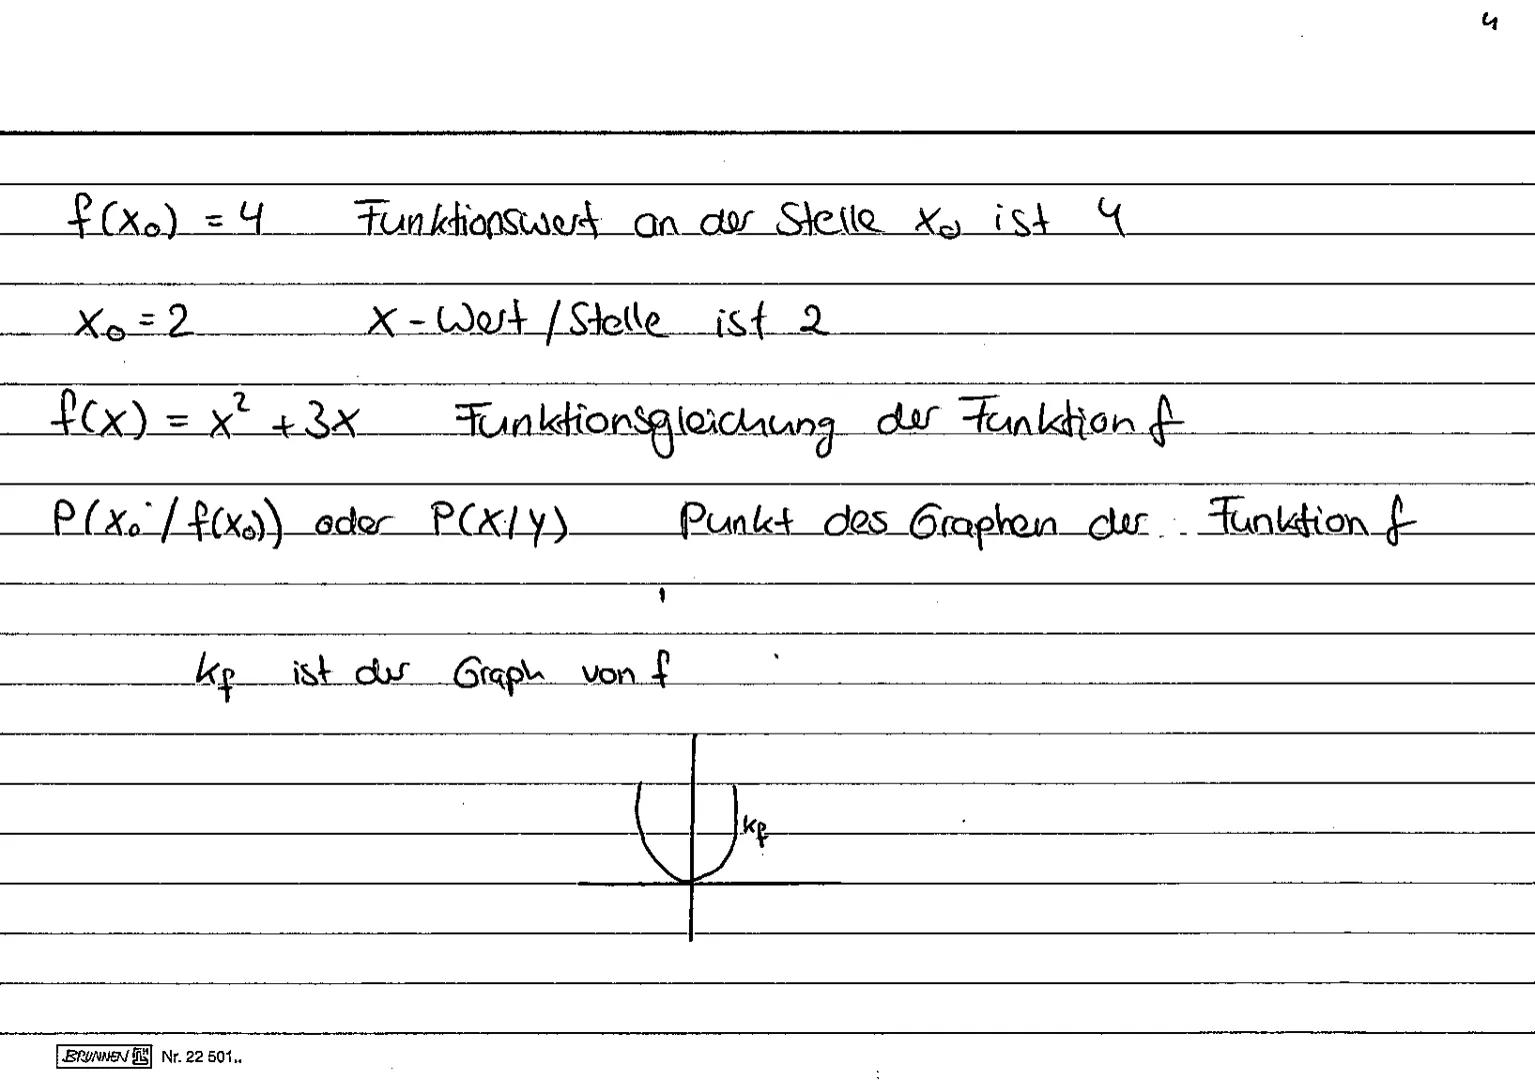 4
f(x₀) = 4 Funktionswert an der Stelle x₀ ist 4
x₀ = 2 x-Wert / Stelle ist 2
f(x) = x² + 3x Funktionsgleichung der Funktion f
P(x₀ / f(x₀)) oder P(x/y) Punkt des Graphen der Funktion f
Kf ist der Graph von f
Kf
BRUNNEN Nr. 22 501..